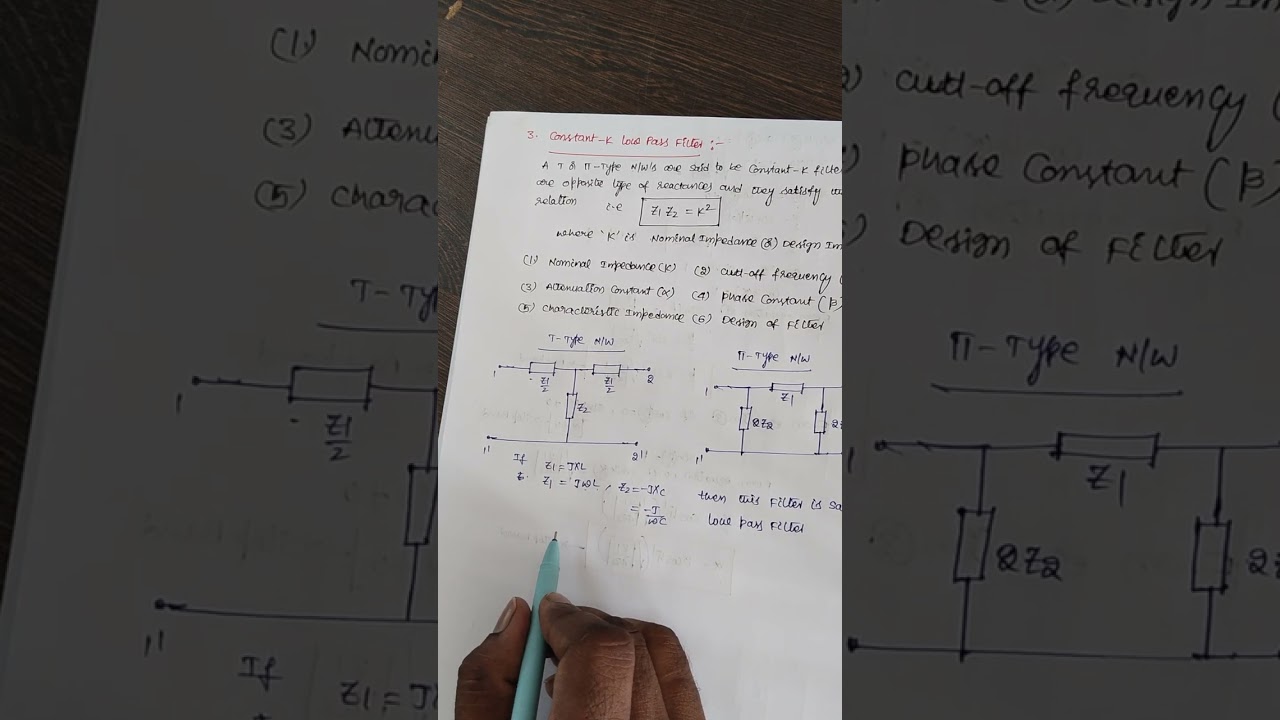 3. Constant-K Low Pass Filter :-
A T & Π-Type N/Ws are said to be Constant-K filter
are opposite type of reactances and they satisfy
relation i.e Z1 Z2 = K²
where 'K' is Nominal Impedance (or) Design Im
(1) Nominal Impedance (K) (2) cutt-off frequency (
(3) Attenuation Constant (α) (4) phase Constant (β)
(5) characteristic Impedance (6) Design of Filter
T-Type N/W
Π-Type N/W
1
Z1/2
Z1/2
2
Z2
1'
2'
1
Z1
2Z2
2Z
1'
If Z1 = JXL
Z1 = JωL, Z2 = -JXC then this Filter is sa
= -J/ωC low pass Filter
(1) Nomi
(3) Attenu
(5) charac
T-Typ
1
Z1/2
1'
If
Z1 = J
) cutt-off frequency (
) phase Constant (β
) Design of Filter
Π-Type N/W
1
Z1
2Z2
2
1'